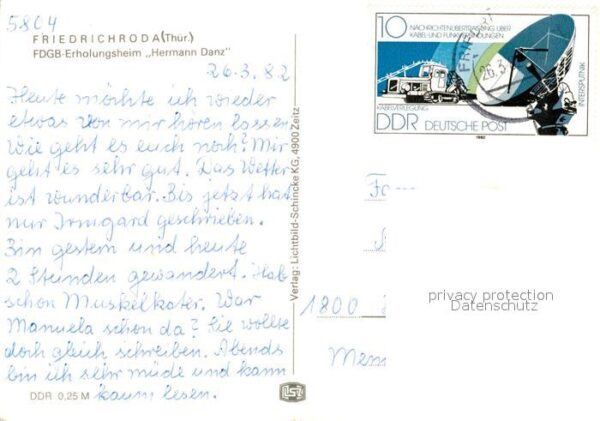 5804
FRIEDRICHRODA (Thür.)
FDGB-Erholungsheim „Hermann Danz"
26.3.82
Heute möchte ich wieder
etwas von mir hören lassen.
Wie geht es euch noch? Mir
geht es sehr gut. Das Wetter
ist wunderbar. Bis jetzt hat
nur Irmgard geschrieben.
Bin gestern und heute
2 Stunden gewandert. Hab
schon Muskelkater. War
Manuela schon da? Sie wollte
doch gleich schreiben. Abends
bin ich sehr müde und kann
kaum lesen.
DDR 0,25 M
Verlag: Lichtbild-Schincke KG, 4900 Zeitz
10
NACHRICHTENÜBERTRAGUNG ÜBER
KABEL- UND FUNKVERBINDUNGEN
INTERSPUTNIK
KABELVERLEGUNG
DDR DEUTSCHE POST
1980
26.3
Fa
1800
privacy protection
Datenschutz